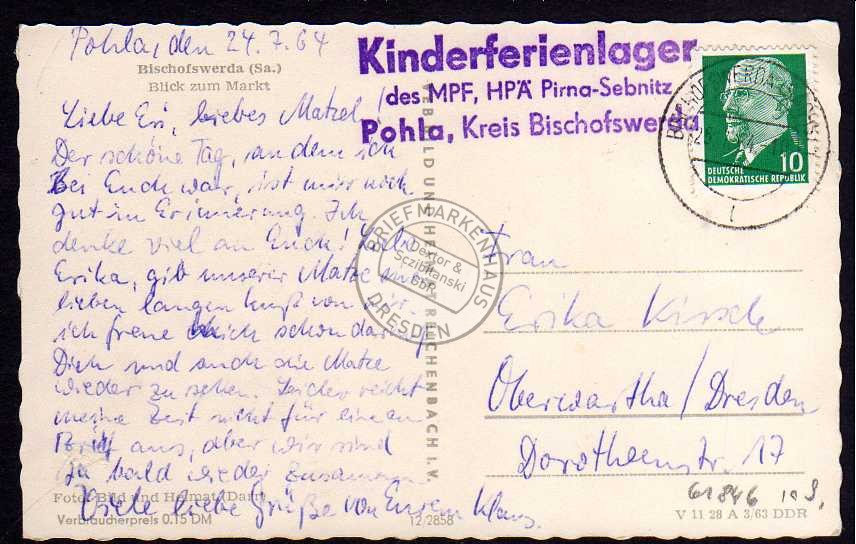 Pohla, den 24.7.64
Bischofswerda (Sa.)
Blick zum Markt
Liebe Eri, liebes Matzel!
Der schöne Tag, an dem ich
bei Euch war, ist mir noch
gut in Erinnerung. Ich
denke viel an Euch! Liebe
Erika, gib unserer Matze einen
lieben langen Kuß von mir.
ich freue mich schon darauf
Dich und auch die Matze
wieder zu sehen. Leider reicht
meine Zeit nicht für einen
Brief aus, aber wir sind
ja bald wieder zusammen
Viele liebe Grüße von Eurem Klaus.
Foto: Bild und Heimat (Darr)
Verbraucherpreis 0.15 DM
12/2858
VEB BILD UND HEIMAT REICHENBACH I. V.
Kinderferienlager
des MPF, HPÄ Pirna-Sebnitz
Pohla, Kreis Bischofswerda
10
DEUTSCHE
DEMOKRATISCHE REPUBLIK
BRIEFMARKENHAUS
Dextor &
Sczibilanski
GbR
DRESDEN
Frau
Erika Kirsch
Oberwartha/Dresden
Dorotheenstr. 17
61846
V 11 28 A 3/63 DDR